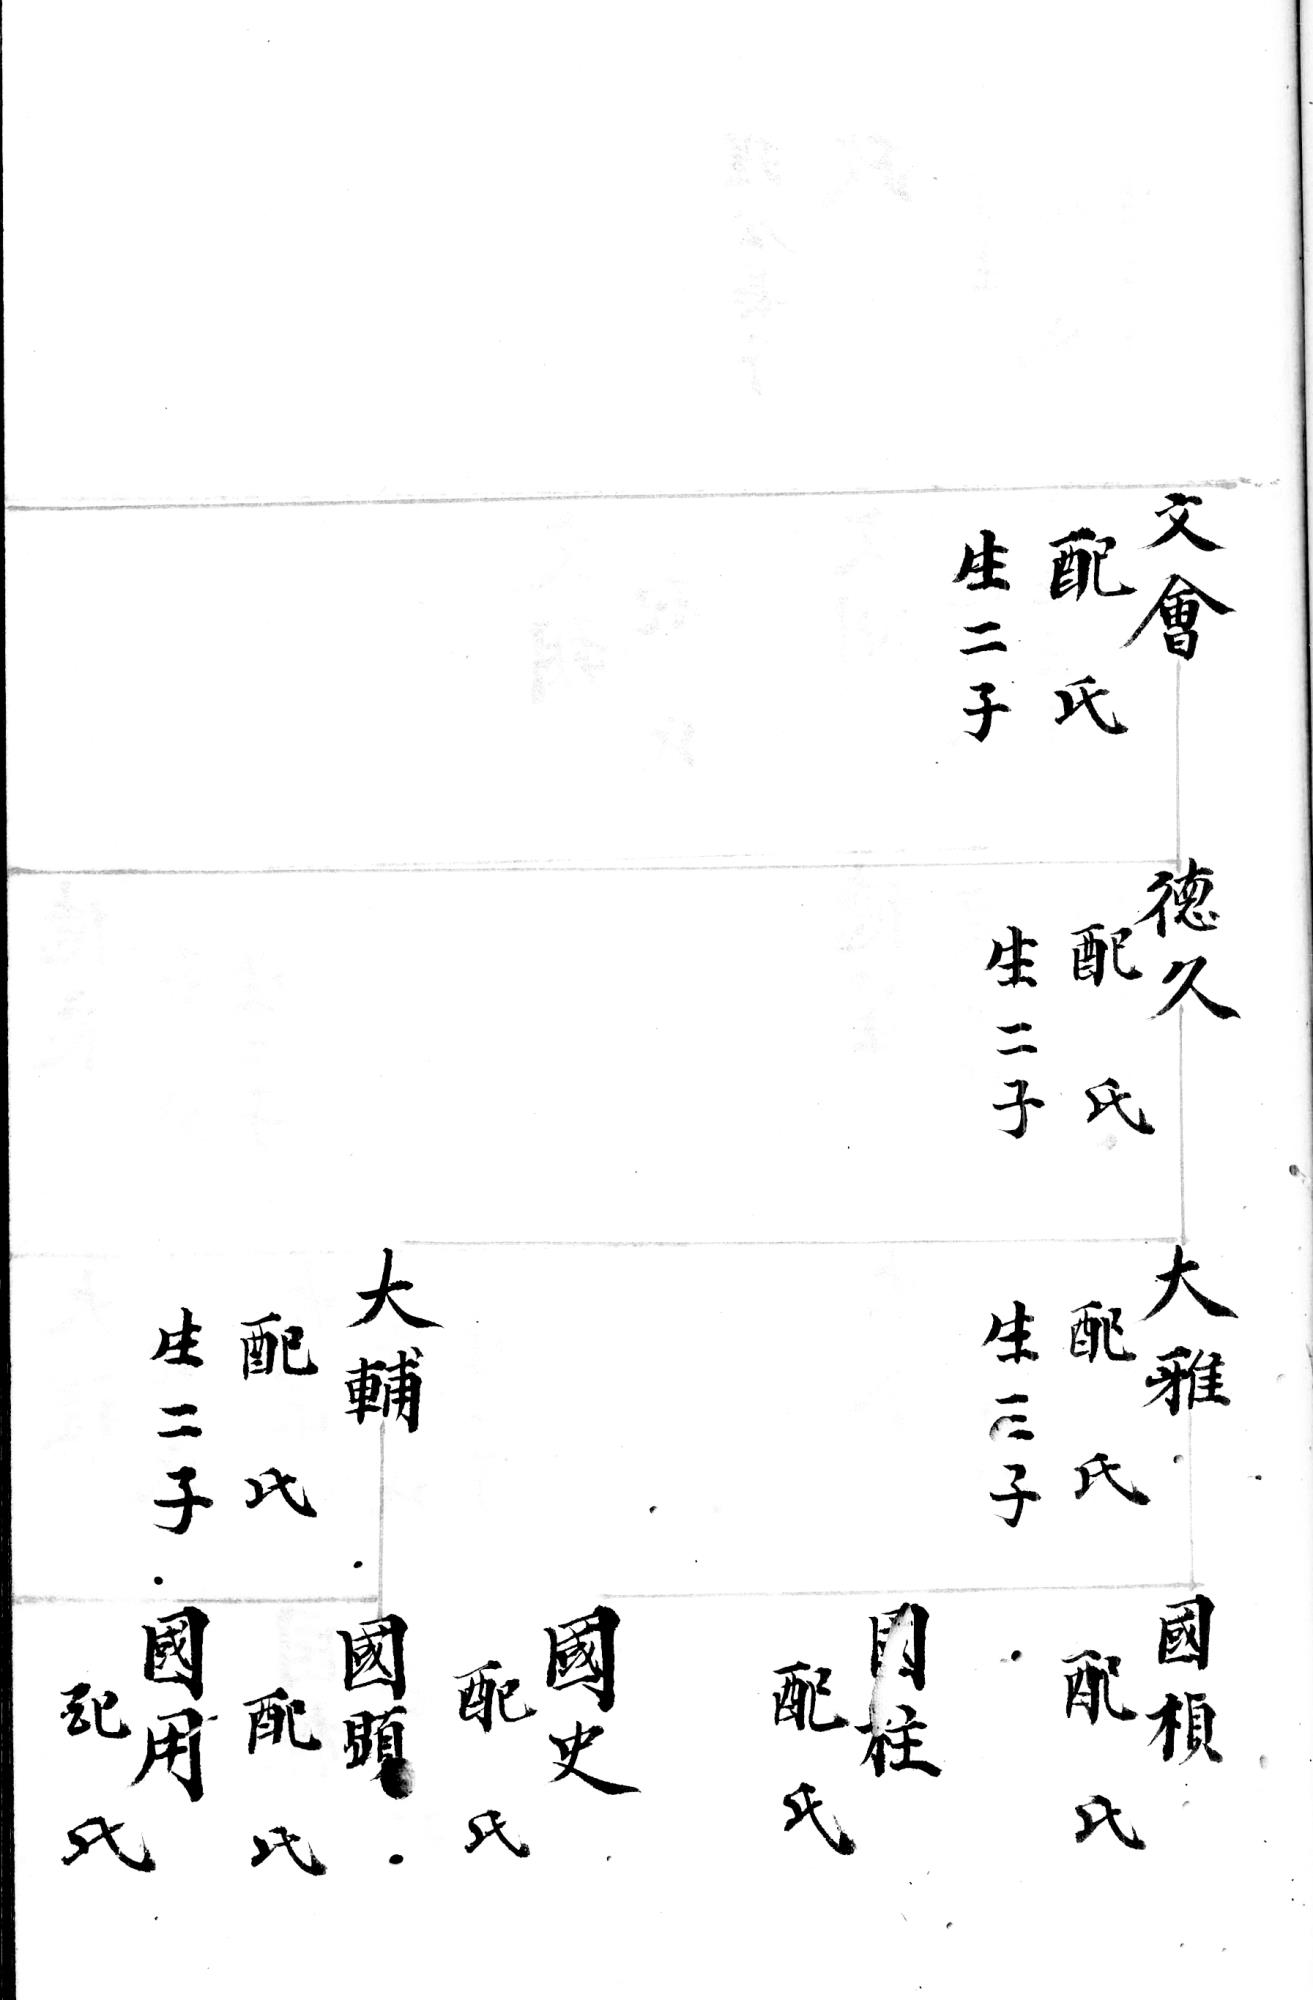 文會
配 氏
生二子
德久
配 氏
生二子
大雅
配 氏
生三子
大輔
配 氏
生二子
國楨
配 氏
國柱
配 氏
國史
配 氏
國顯
配 氏
國用
配 氏